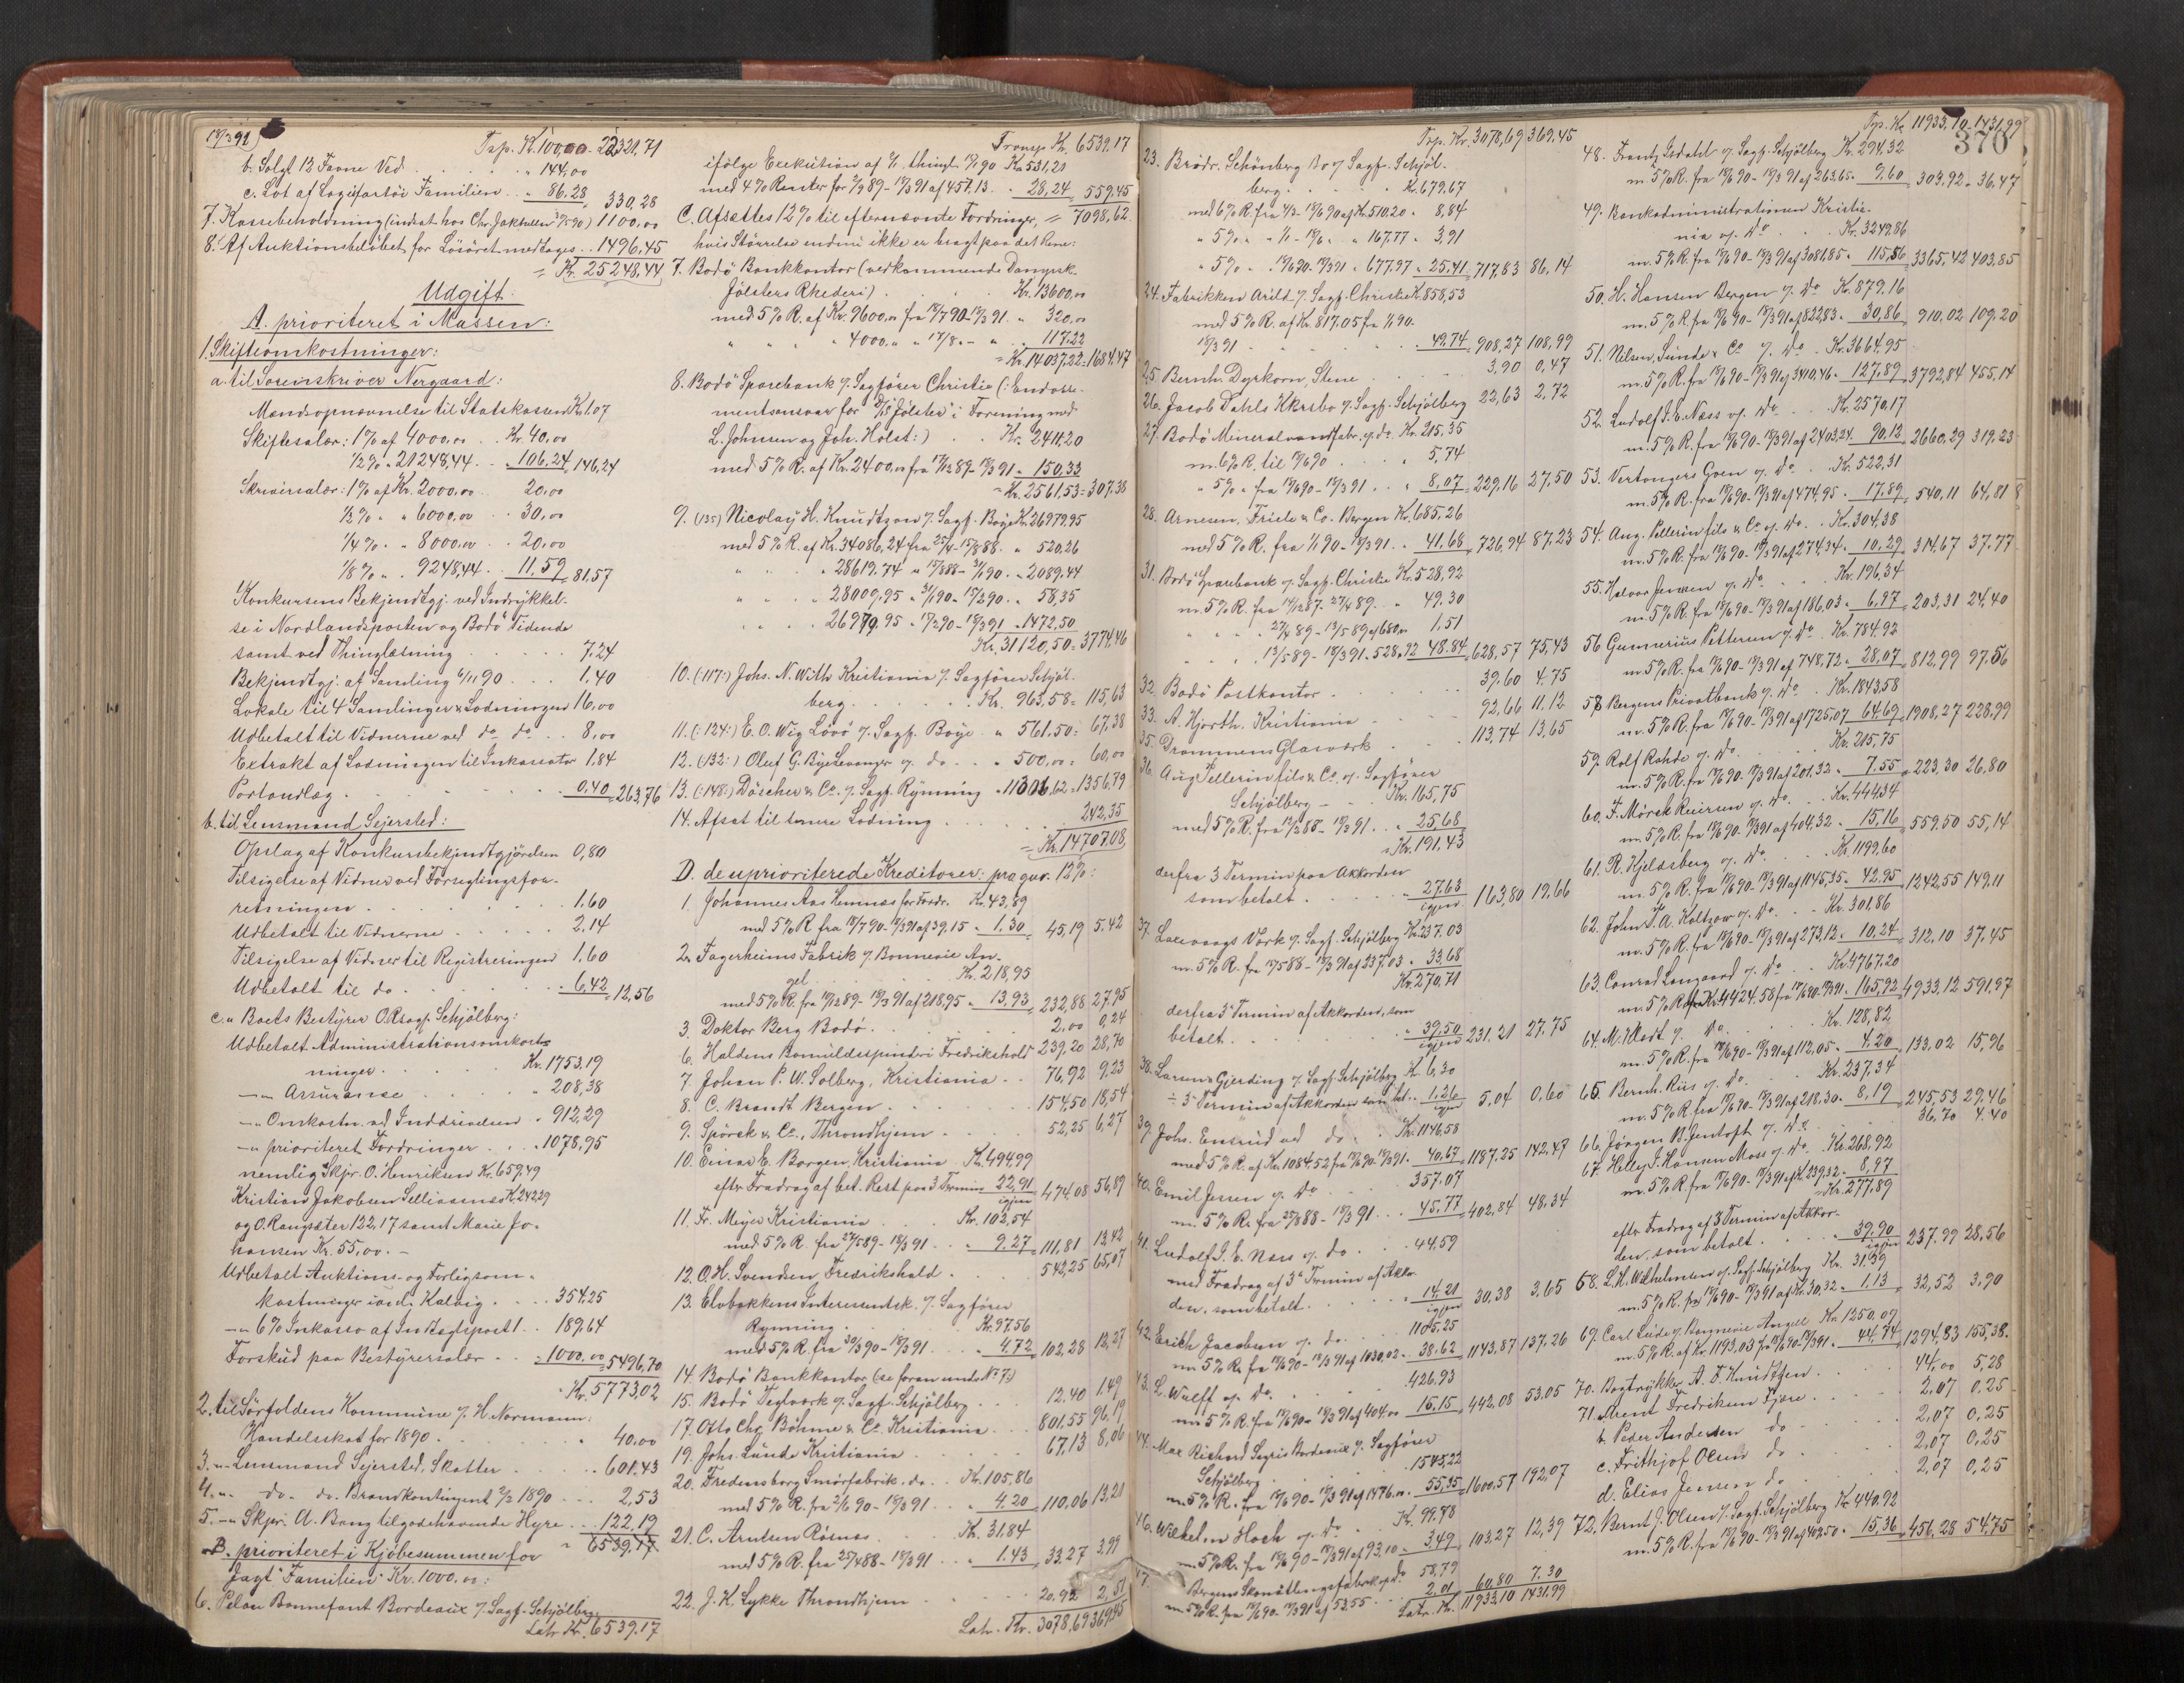 18/3 91
Tsp. Kr. 1000,00 - 22321,71
b. Solgt 13 Favne Ved . . . " 144,00
c. Lot af Lagisfartöi Familien . . " 86,28 330,28
7. Kassebeholdning (indsat hos Chr. Jakhelln 3/5 90) 1100,00
8. Af Auktionsbelöbet for Lösöret medtages . . 1496,45
= Kr. 25248,44
Udgift
A. prioriteret i Massen:
1. Skifteomkostninger:
a. til Sorenskriver Nergaard:
Mandsopnævnelse til Statskassen Kr. 1.07
Skiftesalær: 1% af 4000,00 . . Kr. 40,00
1/2% " 21248,44 . . 106,24 146,24
Skriversalær: 1% af Kr. 2000,00 20,00
1/2% " " 6000,00 . . 30,00
1/4% . " 8000,00 . . 20,00
1/8% " . 9248,44 . . 11,59 81,57
Konkursens Bekjendtgj. ved Indrykkel-
se i Nordlandsposten og Bodö Tidende
samt ved Thinglæsning . . . 7,24
Bekjendtgj. af Samling 6/11 90 . . . 1,40
Lokale til 4 Samlinger & Lodningen 16,00
Udbetalt til Vidnerne ved do do . . 8,00
Extrakt af Lodningen til Inkassator 1,84
Portoudlæg . . . 0,40 263,76
b. til Lensmand Sejersted:
Opslag af Konkursbekjendtgjörelsen 0,80
Tilsigelse af Vidner ved Forseglingsfor-
retningen . . . 1.60
Udbetalt til Vidnerne . . . 2,14
Tilsigelse af Vidner til Registreringen 1,60
Udbetalt til do . . . 6,42 12,56
c. " Boets Bestyrer O.R.sagf. Schjölberg:
Udbetalt Administrationsomkost-
ninger . . . Kr. 1753,19
—"— Assurance . . . " 208,38
—"— Omkostn. ved Inddrivelsen " 912,29
—"— prioriteret Fordringer . . . 1078,95
nemlig Skpr. O. Henriksen Kr. 659,49
Kristian Jakobsen Selliaasen Kr. 242,29
og O. Rangsæter 122,17 samt Marie Jo-
hansen Kr. 55,00. —
Udbetalt Auktions- og Forligsom-
kostninger i Kalvig . . . 354,25
—"— 6% Inkasso af Indtægtspost 1 . . 189,64
Forskud paa Bestyrersalær . . 1000,00 5496,70
Kr. 5773,02
2. til Sörfoldens Kommune v. H. Normann:
Handelsskat for 1890 . . . 40,00
3. —"— Lensmand Sejersted, Skatter . . . 601,43
4. " do. do. Brandkontingent 2/2 1890 . . . 2,53
5. —"— Skpr. A. Bang tilgodehavende Hyre . . 122,19
" 6539,17
B. prioriteret i Kjöbesummen for
Jagt "Familien" Kr. 1000,00:
6. Pelou Bonnefant Bordeaux v. Sagf. Schjölberg
Latr. Kr. 6539,17
Transp. Kr. 6539,17
ifölge Exekution af thingl. 7/1 90 Kr. 531,21
med 4% Renter fra 2/9 89 - 18/3 91 af 457,13 . . 28,24 559,45
= 7098,62
C. Afsættes 12% til efternævnte Fordringer,
hvis Størrelse endnu ikke er bragt paa det Rene:
7. Bodö Bankkontor (vedkommende Dampsk.
Jölsters Rhederi) . . . Kr. 13600,00
med 5% R. af Kr. 9600,00 fra 18/7 90 - 18/3 91 " 320,00
" " " " 4000,00 " 17/8 " - " . 117,22
= Kr. 14037,22 = 1684,47
8. Bodö Sparebank v. Sagförer Christie (: Endosse-
mentsansvar for D/S Jölster i Forening med
L. Johnsen og Joh. Holst:) . . Kr. 2411,20
med 5% R. af Kr. 2400,00 fra 17/12 89 - 18/3 91 " 150,33
= Kr. 2561,53 = 307,38
9. (135) Nicolay H. Knudtzon v. Sagf. Böye Kr. 26979,95
med 5% R. af Kr. 34086,24 fra 25/4 - 15/8 88 . " 520,26
" " " " 28619,74 " 15/8 88 - 31/1 90 . " 2089,44
" " " 28009,95 " 31/1 90 - 15/2 90 . . 58,35
" " " 26979,95 " 15/2 90 - 18/3 91 . 1472,50
Kr. 31120,50 = 3774,46
10. (:117:) Johs. N. With Kristiania v. Sagförer Schjöl-
berg . . . Kr. 963,58 = 115,63
11. (:124:) E. O. Wig Lövö v. Sagf. Böye . " 561,50 = 67,38
12. (132:) Oluf G. Bye Levanger v. do . . . " 500,00 = 60,00
13. (:148:) Döscher & Co. v. Sagf. Rynning . 11306,62 = 1356,79
14. Afsat til senere Lodning . . . 242,35
= Kr. 14707,08
D. de uprioriterede Kreditorer: præqvr. 12%:
1. Johannes Aas Hemnæs for Fredr. Kr. 43,89
med 5% R. fra 18/7 90 - 18/3 91 af 39,15 " 1.30 45,19 5.42
2. Fagerheims Fabrik v. Bonnevie An-
gel . . . Kr. 218,95
med 5% R. fra 10/12 89 - 18/3 91 af 218,95 . 13,93 232,88 27,95
3. Doktor Berg Bodö . . . 2,00 0,24
6. Haldens Bomuldsspinderi Fredrikshald 239,20 28,70
7. Johan P. W. Solberg, Kristiania . . 76,92 9,23
8. C. Brandt Bergen . . . 154,50 18,54
9. Spörck & Co., Throndhjem . . . 52,25 6,27
10. Einar E. Borgen, Kristiania . Kr. 494,99
efter Fradrag af bet. Rest paa 3 Termin 22,91 igjen 474,08 56,89
11. Fr. Meyer Kristiania . . . Kr. 102,54
med 5% R. fra 27/5 89 - 18/3 91 . . . 9,27 111,81 13,42
12. O.H. Svendsen, Fredrikshald . . . 542,25 65,07
13. Elvebakkens Interessentsk. v. Sagförer
Rynning . . . Kr. 97,56
med 5% R. fra 30/3 90 - 18/3 91 . . . 4,72 102,28 12,27
14. Bodö Bankkontor (se foran under No 7:)
15. Bodö Teglværk v. Sagf. Schjölberg . . . 12,40 1,49
17. Otto Chr. Böhme & Co. Kristiania . . . 801,55 96,19
19. Johs. Lunde Kristiania . . . 67,13 8,06
20. Fredensborg Smörfabrik. do . . Kr. 105,86
med 5% R. fra 2/6 90 - 18/3 91 . . . 4,20 110,06 13,21
21. C. Arntsen Rösnæs . . . Kr. 31,84
med 5% R. fra 25/4 88 - 18/3 91 . . . 1,43 33,27 3,99
22. J. H. Lykke Throndhjem . . . 20,92 2,51
Latr. Kr. 3078,69 369,45
Tsp. Kr. 3078,69 369,45
23. Brödr. Schönberg Bo v. Sagf. Schjöl-
berg . . . Kr. 679,67
med 6% R. fra 4/3 - 18/6 90 af Kr. 510,20 " 8,84
" 5% " " 1/1 - 18/6 " " 167,77 " 3,91
" 5% " . 18/6 90 - 18/3 91 " 677,97 " 25,41 717,83 86,14
24. Fabrikken Arild v. Sagf. Christie Kr. 858,53
med 5% R. af Kr. 817,05 fra 1/1 90 -
18/3 91 . . . 49,74 908,27 108,99
25. Bernh. Dyrkorn, Stene . . . 3,90 0,47
26. Jacob Dahls Kkrsbo v. Sagf. Schjölberg 22,63 2,72
27. Bodö Mineralvandfabr. v. do. Kr. 215,35
m. 6% R. til 18/6 90 . . . 5,74
" 5% " fra 18/6 90 - 18/3 91 . . " 8,07 229,16 27,50
28. Arnesen, Friele & Co. Bergen Kr. 685,26
med 5% R. fra 1/1 90 - 18/3 91 . " 41,68 726,94 87,23
31. Bodö Sparebank v. Sagf. Christie Kr. 528,92
m. 5% R. fra 14/12 87 - 27/4 89 . . " 49,30
" " " 27/4 89 - 13/5 89 af 680,00 1,51
" " . 13/5 89 - 18/3 91 " 528,92 48,84 628,57 75,43
32. Bodö Postkontor . . . 39,60 4,75
33. A. Hjorth, Kristiania . . . 92,66 11,12
35. Drammens Glasværk . . . 113,74 13,65
36. Aug. Pellerin fils & Co. v. Sagförer
Schjölberg — . . Kr. 165,75
med 5% R. fra 12/2 88 - 18/3 91 . . " 25,68
= Kr. 191,43
derfra 3 Termin paa Akkorden
som betalt . . . 27,63 igjen 163,80 19,66
37. Laxevaags Værk v. Sagf. Schjölberg Kr. 237,03
m. 5% R. fra 18/5 88 - 18/3 91 af 237,03 " 33,68
Kr. 270,71
derfra 3 Termin af Akkorden, som
betalt . . . " 39,50 igjen 231,21 27,75
38. Laurens Gjerding v. Sagf. Schjölberg Kr. 6,30
÷ 3 Termin af Akkorden som bet . . 1,26 igjen 5,04 0,60
39. Johs. Ensrud ved do . . Kr. 1146,58
med 5% R. af Kr. 1084,52 fra 18/6 90 - 18/3 91 " 40,67 1187,25 142,47
40. Emil Jessen v. do . . . 357,07
m. 5% R. fra 25/8 88 - 18/3 91 . . . 45,77 402,84 48,34
41. Ludolf J. E. Næss v. do . . . 44,59
med Fradrag af 3 Termin af Akkor-
den, som betalt . . . " 14,21 igjen 30,38 3,65
42. Erich Jacobsen v. do . . . 1105,25
m. 5% R. fra 18/6 90 - 18/3 91 af 1030,02 " 38,62 1143,87 137,26
43. L. Wulff v. do . . . 426,93
m. 5% R. fra 18/6 90 - 18/3 91 af 404,00 15,15 442,08 53,05
44. Max Richard Bordeaux v. Sagförer
Schjölberg . . . 1545,22
m. 5% R. fra 18/6 90 - 18/3 91 af 1476,00 " 55,35 1600,57 192,07
46. Wilhelm Hoch v. do . . Kr. 99,78
m. 5% R. fra 18/6 90 - 18/3 91 af 93,10 " 3,49 103,27 12,39
47. Bergens Skonötlingsfabrik v. do 58,79
m. 5% R. fra 18/6 90 - 18/3 91 af 53,55 . . . 2,01 60,80 7,30
Latr. Kr. 11933,10 1431,99
Tsp. Kr. 11933,10 - 1431,99
370
48. Frantz Isdahl v. Sagf. Schjölberg Kr. 294,32
m. 5% R. fra 18/6 90 - 18/3 91 af 263,65 " 9,60 303,92 " 36,47
49. Bankadministrationen Kristia-
nia v. do . . Kr. 3249,86
m. 5% R. fra 18/6 90 - 18/3 91 af 3081,85 " 115,56 3365,42 403,85
50. H. Hansen Bergen v. do Kr. 879,16
m. 5% R. fra 18/6 90 - 18/3 91 af 822,83 " 30,86 910,02 109,20
51. Nilsen, Sunde & Co v. do . Kr. 3664,95
m. 5% R. fra 18/6 90 - 18/3 91 af 3410,46 " 127,89 3792,84 455,14
52. Ludolf J. E. Næss v. do . . Kr. 2570,17
m. 5% R. fra 18/6 90 - 18/3 91 af 2403,24 " 90,12 2660,29 319,23
53. Vertongers Goen v. do . . Kr. 522,31
m. 5% R. fra 18/6 90 - 18/3 91 af 474,95 " 17,89 540,11 64,81
54. Aug. Pellerin fils & Co v. do . Kr. 304,38
m. 5% R. fra 18/6 90 - 18/3 91 af 274,34 " 10,29 314,67 37,77
55. Halvor Jensen v. do . . . Kr. 196,34
m. 5% R. fra 18/6 90 - 18/3 91 af 186,03 " 6,97 203,31 24,40
56 Gunnerius Pettersen v. do . Kr. 784,92
m. 5% R. fra 18/6 90 - 18/3 91 af 748,72 " 28,07 812,99 97,56
58 Bergens Privatbank v. do . Kr. 1843,58
m. 5% R. fra 18/6 90 - 18/3 91 af 1725,07 64,69 1908,27 228,99
59. Rolf Rohde v. do . . . Kr. 215,75
m. 5% R. fra 18/6 90 - 18/3 91 af 201,32 " 7,55 223,30 26,80
60. F. Mörck Reiersen v. do . . Kr. 444,34
m. 5% R. fra 18/6 90 - 18/3 91 af 404,32 " 15,16 559,50 55,14
61. R. Kjeldsberg v. do . . . Kr. 1199,60
m. 5% R. fra 18/6 90 - 18/3 91 af 1145,35 " 42,95 1242,55 149,11
62. John T. A. Koltzow v. do . . Kr. 301,86
m. 5% R. fra 18/6 90 - 18/3 91 af 273,12 " 10,24 312,10 37,45
63. Conrad Langaard v. do . . Kr. 4767,20
m. 5% R. af Kr. 4424,58 fra 18/6 90 - 18/3 91 " 165,92 4933,12 591,97
64. M. v. do . . . Kr. 128,82
m. 5% R. fra 18/6 90 - 18/3 91 af 112,05 " 4,20 133,02 15,96
65. Bernh. Riis v. do . . . Kr. 237,34
m. 5% R. fra 18/6 90 - 18/3 91 af 218,30 " 8,19 245,53 29,46
66. Jörgen B. Jentoft v. do . . 36,70 4,40
67. Helly J. Hansen Moss v. do . Kr. 268,92
m. 5% R. fra 18/6 90 - 18/3 91 af Kr. 239,32 " 8,97
= Kr. 277,89
efter Fradrag af 3 Termin af Akkor-
den, som betalt . . . 39,90 igjen 237,99 28,56
68. L. H. Wilhelmsen v. Sagf. Schjölberg Kr. 31,39
m. 5% R. fra 18/6 90 - 18/3 91 af Kr. 30,32 " 1,13 32,52 3,90
69. Carl Lude v. Bonnevie Angell Kr. 1250,09
m. 5% R. af Kr. 1193,03 fra 18/6 90 - 18/3 91 " 44,74 1294,83 155,38
70. Bogtrykker A. F. Knudtzen . . . 44,00 5,28
71. a. Arent Fredriksen Fjære . . . 2,07 0,25
b. Peder Andersen do . . . 2,07 0,25
c. Frithjof Olsen do . . . 2,07 0,25
d. Elias Jensen do . . . 2,07 0,25
72. Bernt J. Olsen v. Sagf. Schjölberg Kr. 440,92
m. 5% R. fra 18/6 90 - 18/3 91 af 409,50 " 15,36 456,28 54,75